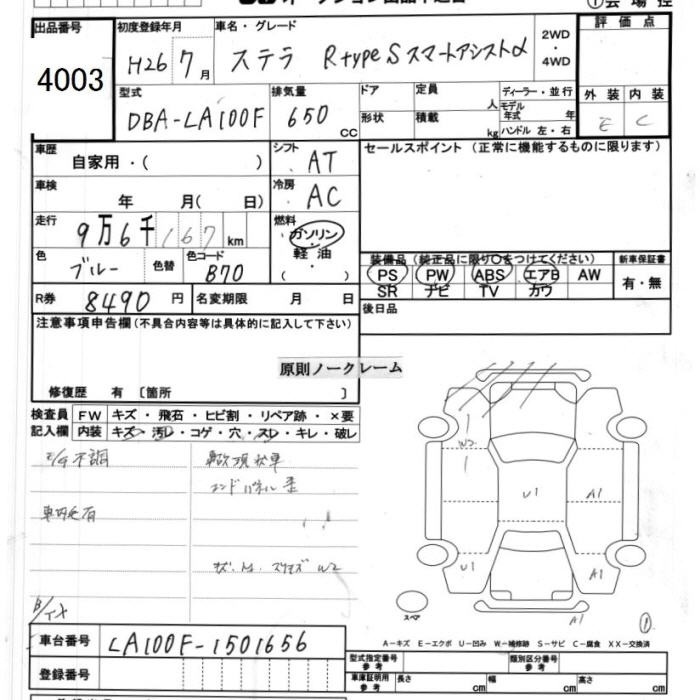 出品番号 初度登録年月 車名・グレード 評価点
4003 H26 7月 ステラ RtypeSスマートアシストα 2WD・4WD
外装 内装
E C
型式 排気量 ドア 定員 ディーラー・並行
DBA-LA100F 650cc 人 モデル年式 年
形状 積載 kg ハンドル 左・右
車歴 シフト セールスポイント(正常に機能するものに限ります)
自家用・( ) AT
車検 冷房
年 月( 日) AC
走行 燃料
9万6千167km ガソリン
・
軽油
・
( )
色 ブルー 色替 色コード B70
装備品(純正品に限り○をつけてください) 新車保証書
PS PW ABS エアB AW 有・無
SR ナビ TV カワ
R券 8490円 名変期限 月 日 後日品
注意事項申告欄(不具合内容等は具体的に記入して下さい)
原則ノークレーム
修復歴 有 〔箇所 〕
検査員 FW キズ・飛石・ヒビ割・リペア跡・×要
記入欄 内装 キズ・汚レ・コゲ・穴・スレ・キレ・破レ
不調 現状車
車内毛有
W2
W2
1
1
U1 A1
U1 A1
A1
スペア
①
車台番号 LA100F-1501656
A-キズ E-エクボ U-凹み W-補修跡 S-サビ C-腐食 XX-交換済
登録番号
型式指定番号参考 類別区分番号参考
車庫証明用参考 長さ cm 幅 cm 高さ cm